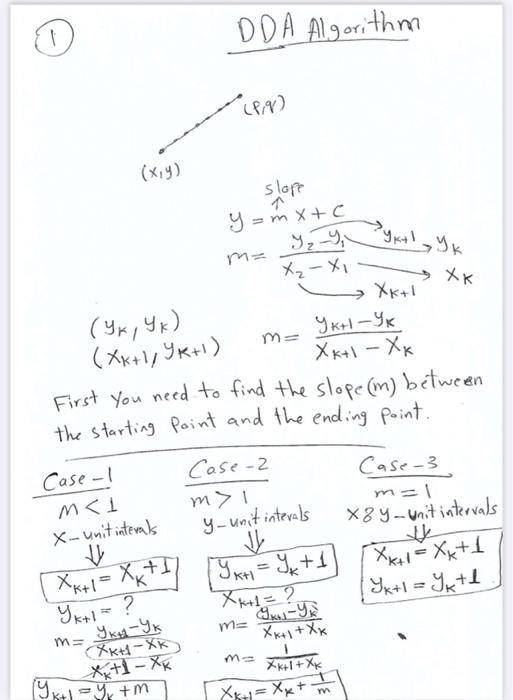 1
DDA Algorithm
(P,q)
(x,y)
slope
↑
y = m x + c
m = y₂ - y₁ / x₂ - x₁
yK+1
yK
xK
xK+1
(yK, yK)
(xK+1, yK+1)
m = yK+1 - yK / xK+1 - xK
First you need to find the slope (m) between
the starting Point and the ending point.
Case-1
m < 1
x-unit intevals
⇓
xK+1 = xK + 1
yK+1 = ?
m = yK+1 - yK / xK+1 - xK
xK+1 - xK
yK+1 = yK + m
Case-2
m > 1
y-unit intevals
⇓
yK+1 = yK + 1
xK+1 = ?
m = yK+1 - yK / xK+1 + xK
m = 1 / xK+1 + xK
xK+1 = xK + 1/m
Case-3
m = 1
x & y-unit intervals
⇓
xK+1 = xK + 1
yK+1 = yK + 1